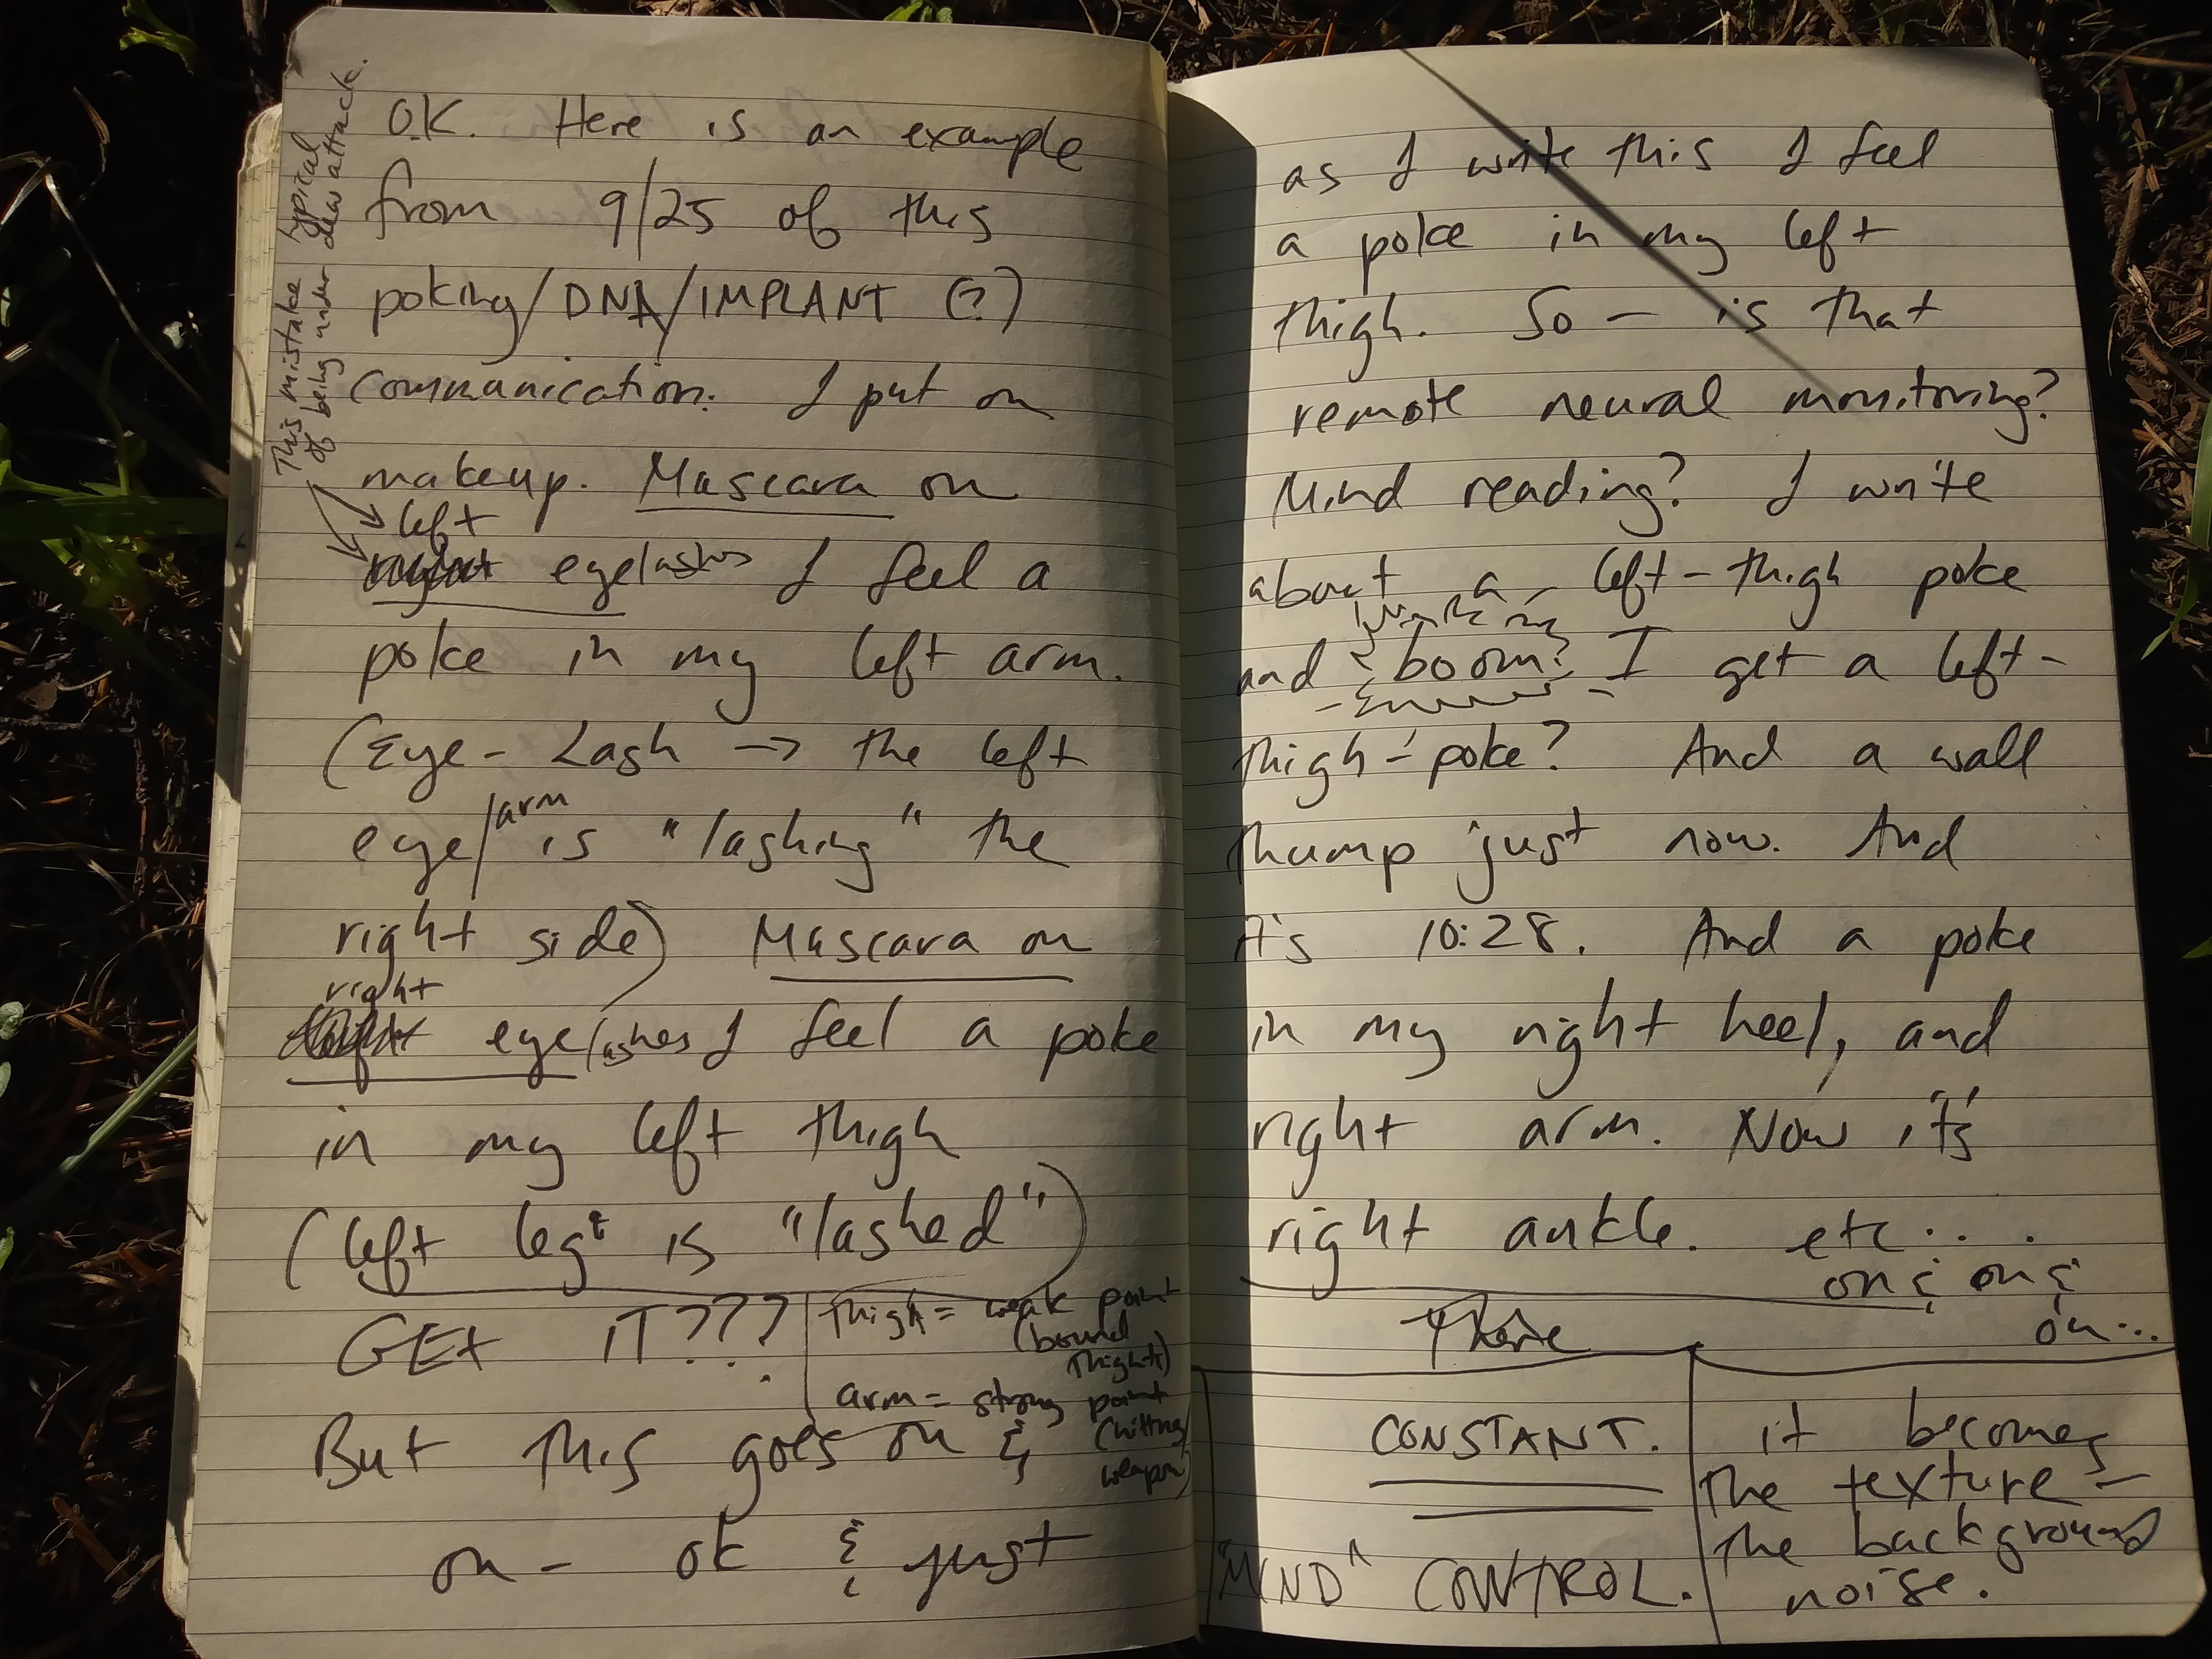 This mistake typical
of being under dew attack.
O.K. Here is an example
from 9/25 of this
poking/DNA/IMPLANT (?)
communication: I put on
makeup. Mascara on
left
eyelashes I feel a
poke in my left arm.
(Eye-Lash → the left
eye/arm is "lashing" the
right side) Mascara on
right
eyelashes I feel a poke
in my left thigh
(left leg is "lashed")
GET IT???
thigh = weak point
(bound
thight)
arm = strong point
(hitting
weapon)
But this goes on &
on - ok & just
as I write this I feel
a poke in my left
thigh. So — is that
remote neural monitoring?
Mind reading? I write
about a left-thigh poke
and boom? I get a left-
thigh-poke? And a wall
thump just now. And
it's 10:28. And a poke
in my right heel, and
right arm. Now it's
right ankle. etc...
on & on &
on...
CONSTANT.
"MIND" CONTROL.
it becomes
the texture —
the background
noise.